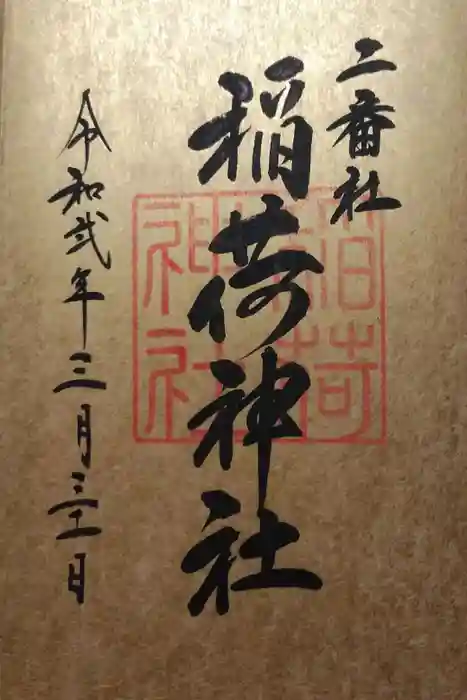 二番社
稲荷神社
令和弐年三月三十一日
稲荷
神社